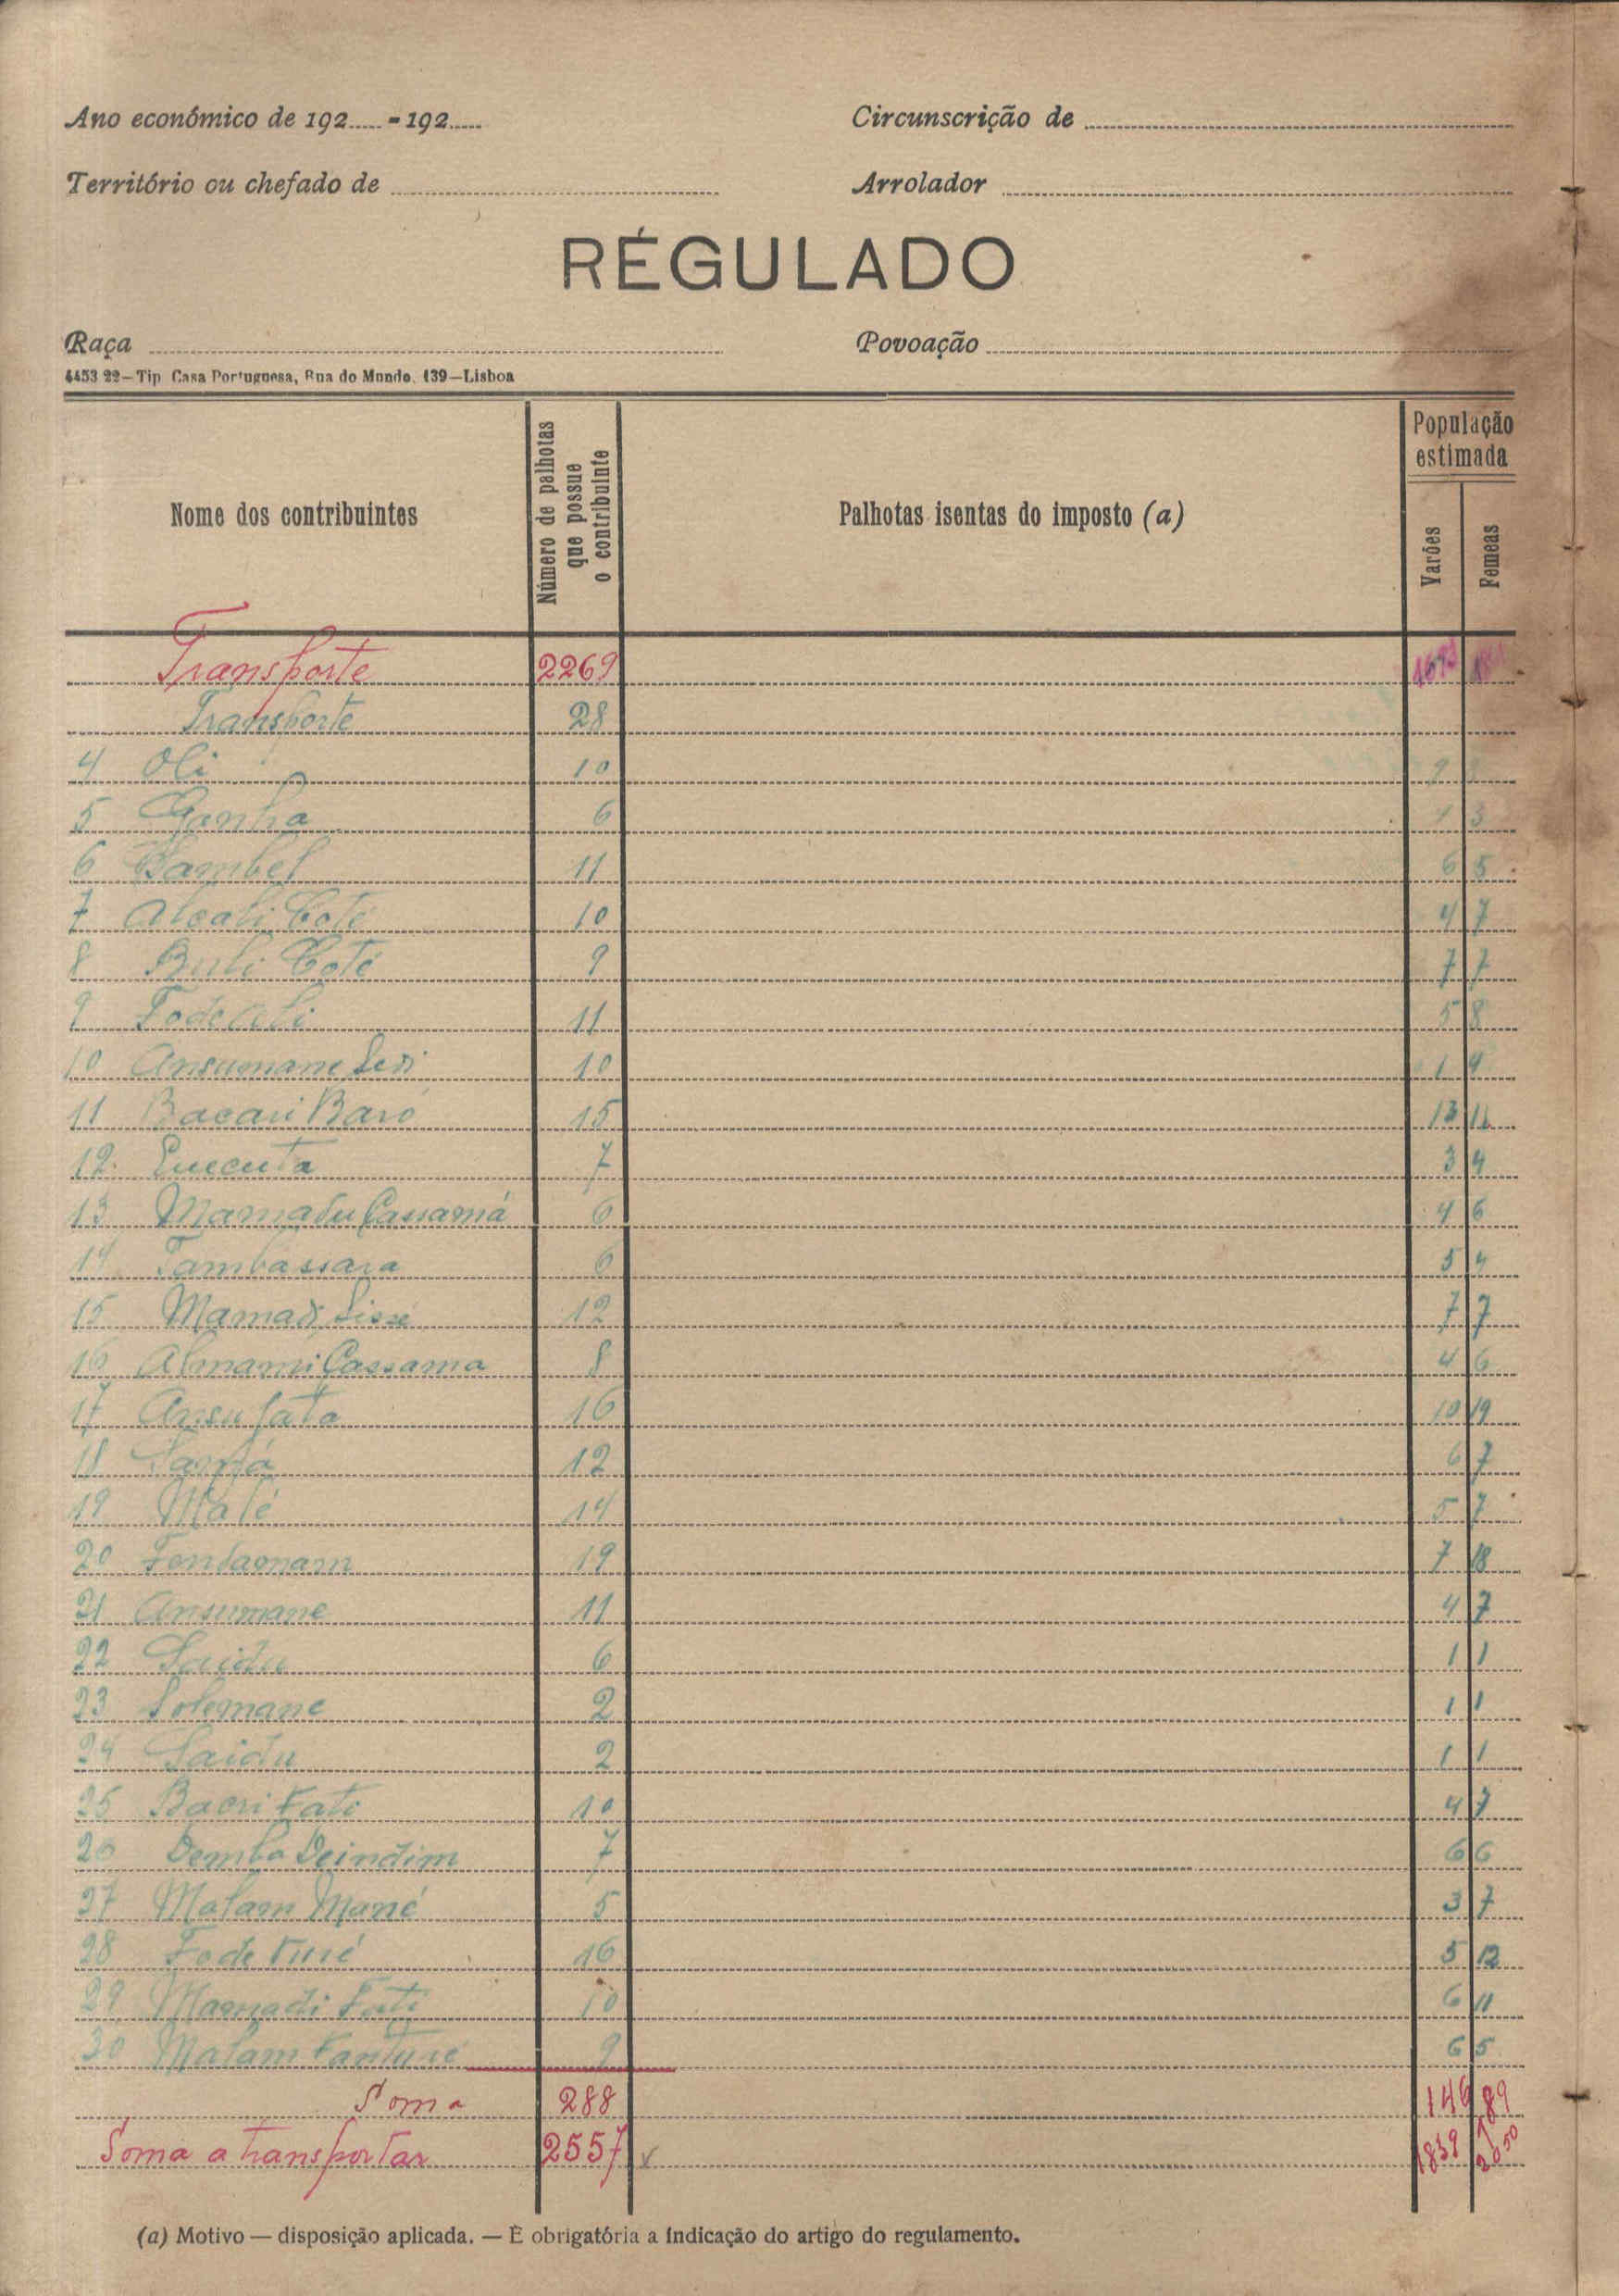 Ano económico de 192..... - 192.....
Circunscrição de
Território ou chefado de
Arrolador
RÉGULADO
Raça
Povoação
4453 22—Tip Casa Portuguesa, Rua do Mundo, 139—Lisboa
Nome dos contribuintes
Número de palhotas que possue o contribuinte
Palhotas isentas do imposto (a)
População estimada
Varões
Femeas
Transporte 2269
Transporte 28
4 Oli 10
5 6 3
6 11 6 5
7 Alcali Coté 10 4 7
8 Buli Coté 9 7 7
9 Fode 11 5 8
10 Ansumane 10 1 4
11 Bacari Baró 15
12 7 3 4
13 Mamadu Cassamá 6 4 6
14 Tambassara 6 5 4
15 Mamadi Sissé 12 7 7
16 Almami Cassama 8 4 6
17 Ansu fata 16 10
18 12 6 7
19 Malé 14 5 7
20 19 7 18
21 Ansumane 11 4 7
22 Saidu 6 1 1
23 Solemane 2 1 1
24 Saidu 2 1 1
25 Bacri Fati 10 4 7
26 Demba Deindim 7 6 6
27 Malam Mané 5 3 7
28 Fode Turé 16 5 12
29 Mamadi Fati 10 6 11
30 Malam Fanturé 9 6 5
Soma 288 146 189
Soma a transportar 2557 1839 2050
(a) Motivo — disposição aplicada. — É obrigatória a indicação do artigo do regulamento.